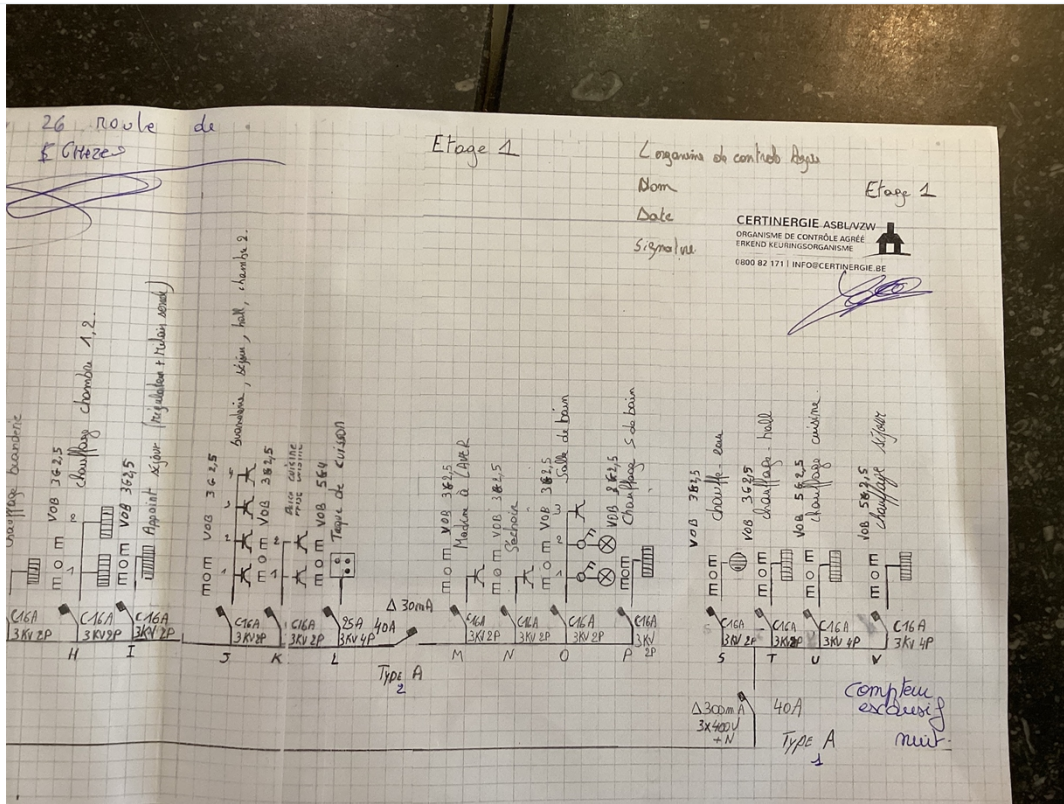 26 route de
Etage 1
L'organisme de controle Agréé
Nom
Date
Signature
Etage 1
CERTINERGIE ASBL/VZW
ORGANISME DE CONTRÔLE AGRÉÉ
ERKEND KEURINGSORGANISME
0800 82 171 | INFO@CERTINERGIE.BE
chauffage buanderie
m o m VOB 3G2,5
chauffage chambre 1,2.
m o m VOB 3G2,5
Appoint séjour (régulation + relais sonde)
m o m VOB 3G2,5
buanderie, séjour, hall, chambre 2.
m o m VOB 3G2,5
cuisine
m o m VOB 5G4
Taque de cuisson
m o m VOB 3G2,5
Machine à LAVER
m o m VOB 3G2,5
Séchoir
m o m VOB 3G2,5
Salle de bain
m o m VOB 3G2,5
Chauffage S de bain
m o m VOB 3G2,5
chauffe-eau
m o m VOB 3G2,5
chauffage hall
m o m VOB 5G2,5
chauffage cuisine.
m o m VOB 5G2,5
chauffage séjour
C16A
3KV 2P
C16A
3KV 2P
H
C16A
3KV 2P
I
C16A
3KV 2P
J
C16A
3KV 2P
K
25A 40A
3KV 4P
L
Δ 30mA
Type A
2
C16A
3KV 2P
M
C16A
3KV 2P
N
C16A
3KV 2P
O
C16A
3KV
2P
P
C16A
3KV 2P
S
C16A
3KV 2P
T
C16A
3KV 4P
U
C16A
3KV 4P
V
Δ 300mA 40A
3x400V
+N
TYPE A
1
compteur
excausif
nuit.